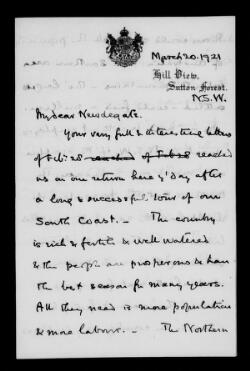 March 20. 1921
Hill View,
Sutton Forest.
N.S.W.
My dear Newdegate.
Your very full & interesting letters
of Feb: 28 reached of Feb 28 reached
us on our return here y'day after
a long & successful tour of our
South Coast. - The country
is rich & fertile & well watered
& the people are prosperous & have
the best season for many years.
All they need is more population
& more labour. - The Northern